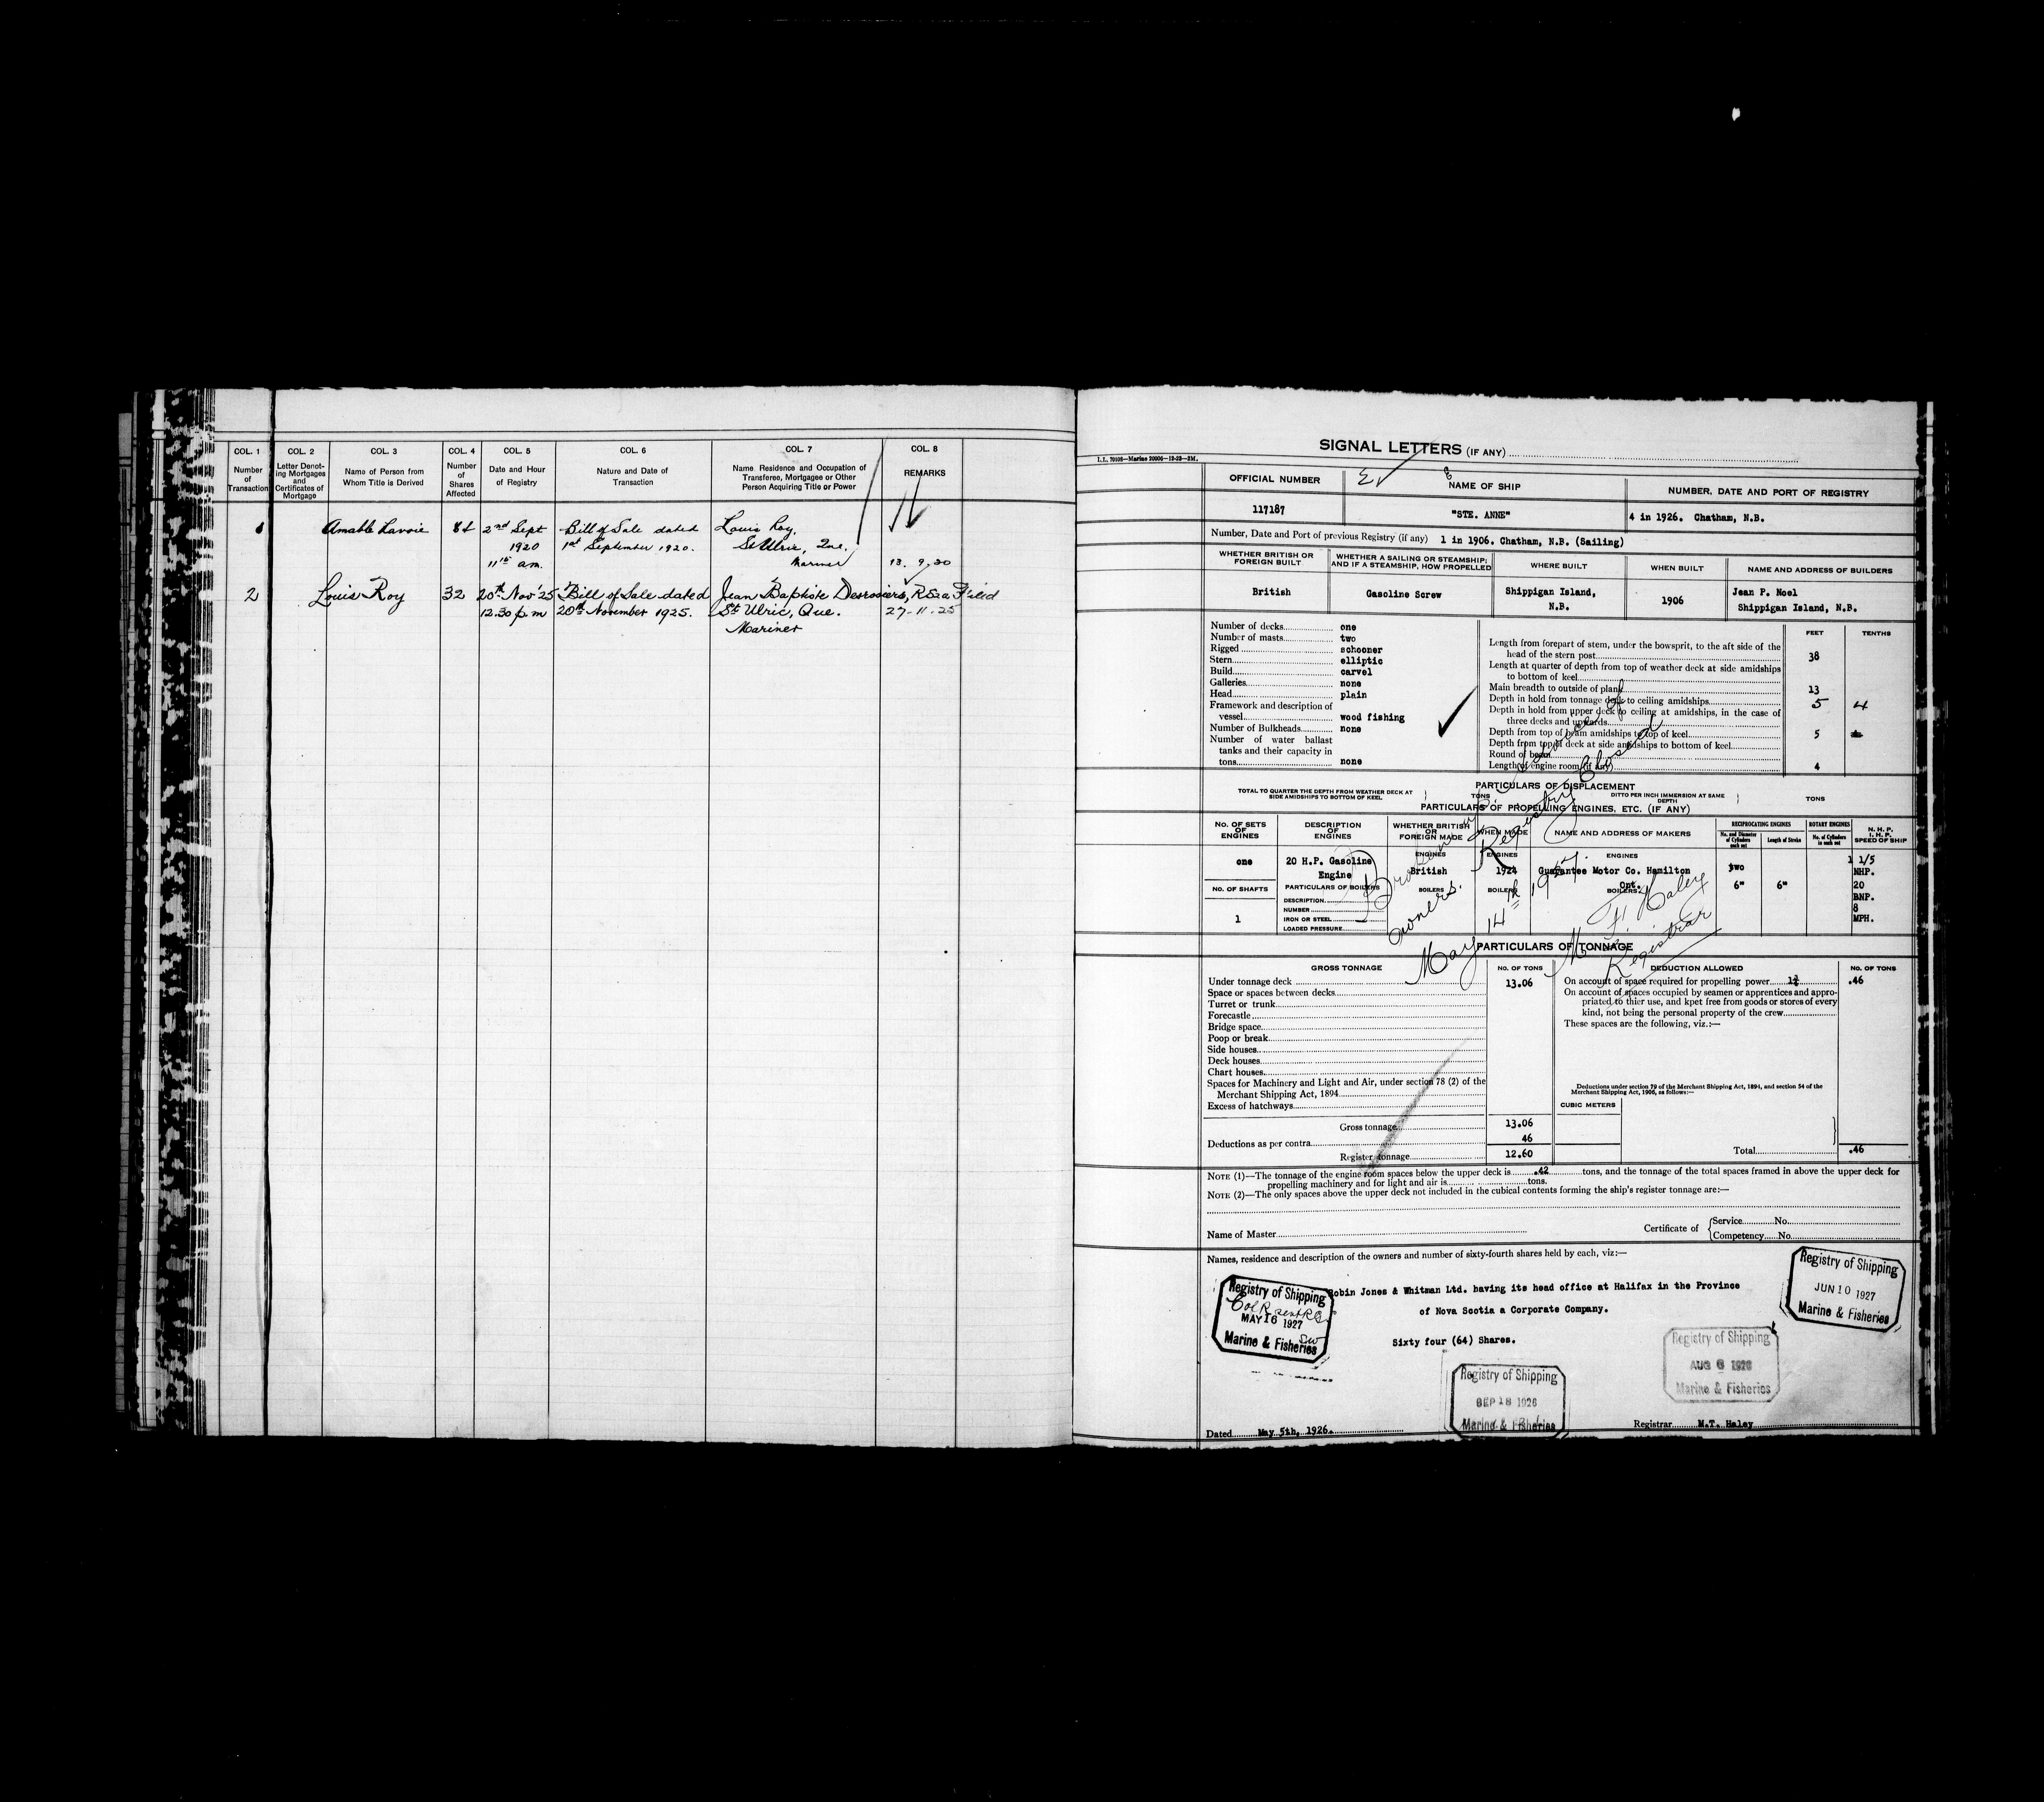 COL. 1
Number
of
Transaction
COL. 2
Letter Denot-
ing Mortgages
and
Certificates of
Mortgage
COL. 3
Name of Person from
Whom Title is Derived
COL. 4
Number
of
Shares
Affected
COL. 5
Date and Hour
of Registry
COL. 6
Nature and Date of
Transaction
COL. 7
Name, Residence and Occupation of
Transferee, Mortgagee or Other
Person Acquiring Title or Power
COL. 8
REMARKS
1 Amable Lavoie 64 2nd Sept Bill of Sale dated Louis Roy,
1920 1st September 1920. St Ulric, Que.
11 a.m. Mariner 13. 9. 20
2 Louis Roy 32 20th Nov '25 Bill of Sale dated Jean Baptiste Desrosiers, Filed
12.30 p.m 20th November 1925. St Ulric, Que. 27-11-25
Mariner
SIGNAL LETTERS (IF ANY)
I.L. 70105—Marine 20000—12-23—2M.
OFFICIAL NUMBER
117187
NAME OF SHIP
"STE. ANNE"
NUMBER, DATE AND PORT OF REGISTRY
4 in 1926. Chatham, N.B.
Number, Date and Port of previous Registry (if any) 1 in 1906. Chatham, N.B. (Sailing)
WHETHER BRITISH OR
FOREIGN BUILT
British
WHETHER A SAILING OR STEAMSHIP;
AND IF A STEAMSHIP, HOW PROPELLED
Gasoline Screw
WHERE BUILT
Shippigan Island,
N.B.
WHEN BUILT
1906
NAME AND ADDRESS OF BUILDERS
Jean P. Noel
Shippigan Island, N.B.
Number of decks one
Number of masts two
Rigged schooner
Stern elliptic
Build carvel
Galleries none
Head plain
Framework and description of
vessel wood fishing
Number of Bulkheads none
Number of water ballast
tanks and their capacity in
tons none
FEET TENTHS
Length from forepart of stem, under the bowsprit, to the aft side of the
head of the stern post 38
Length at quarter of depth from top of weather deck at side amidships
to bottom of keel
Main breadth to outside of plank 13
Depth in hold from tonnage deck to ceiling amidships 5 4
Depth in hold from upper deck to ceiling at amidships, in the case of
three decks and upwards
Depth from top of beam amidships to top of keel 5
Depth from top of deck at side amidships to bottom of keel
Round of beam
Length of engine room (if any) 4
PARTICULARS OF DISPLACEMENT
TOTAL TO QUARTER THE DEPTH FROM WEATHER DECK AT
SIDE AMIDSHIPS TO BOTTOM OF KEEL. TONS
DITTO PER INCH IMMERSION AT SAME
DEPTH TONS
PARTICULARS OF PROPELLING ENGINES, ETC. (IF ANY)
No. OF SETS
OF
ENGINES
one
No. OF SHAFTS
1
DESCRIPTION
OF
ENGINES
20 H.P. Gasoline
Engine
PARTICULARS OF BOILERS
DESCRIPTION
NUMBER
IRON OR STEEL
LOADED PRESSURE
WHETHER BRITISH
OR
FOREIGN MADE
ENGINES
British
BOILERS
WHEN MADE
ENGINES
1924
BOILERS
NAME AND ADDRESS OF MAKERS
ENGINES
Guarantee Motor Co. Hamilton
Ont.
BOILERS
RECIPROCATING ENGINES
No. and Diameter
of Cylinders
each set
two
6"
Length of Stroke
6"
ROTARY ENGINES
No. of Cylinders
in each set
N. H. P.
I. H. P.
SPEED OF SHIP
1 1/5
NHP.
20
BNP.
8
MPH.
Broken up. Advice of
owners. Registry Closed
May 14th 1927.
M. F. Haley
Registrar
PARTICULARS OF TONNAGE
GROSS TONNAGE No. OF TONS
Under tonnage deck 13.06
Space or spaces between decks
Turret or trunk
Forecastle
Bridge space
Poop or break
Side houses
Deck houses
Chart houses
Spaces for Machinery and Light and Air, under section 78 (2) of the
Merchant Shipping Act, 1894
Excess of hatchways
Gross tonnage 13.06
Deductions as per contra 46
Register tonnage 12.60
DEDUCTION ALLOWED No. OF TONS
On account of space required for propelling power .46
On account of spaces occupied by seamen or apprentices and appro-
priated to thier use, and kpet free from goods or stores of every
kind, not being the personal property of the crew
These spaces are the following, viz.:—
Deductions under section 79 of the Merchant Shipping Act, 1894, and section 54 of the
Merchant Shipping Act, 1906, as follows:—
CUBIC METERS
Total .46
NOTE (1)—The tonnage of the engine room spaces below the upper deck is .42 tons, and the tonnage of the total spaces framed in above the upper deck for
propelling machinery and for light and air is tons.
NOTE (2)—The only spaces above the upper deck not included in the cubical contents forming the ship's register tonnage are:—
Name of Master
Certificate of
Service No.
Competency No.
Names, residence and description of the owners and number of sixty-fourth shares held by each, viz:—
Robin Jones & Whitman Ltd. having its head office at Halifax in the Province
of Nova Scotia a Corporate Company.
Sixty four (64) Shares.
Registry of Shipping
MAY 16 1927
Marine & Fisheries
Registry of Shipping
JUN 10 1927
Marine & Fisheries
Registry of Shipping
AUG 6 1926
Marine & Fisheries
Registry of Shipping
SEP 18 1926
Marine & Fisheries
Dated May 5th, 1926.
Registrar M.T. Haley